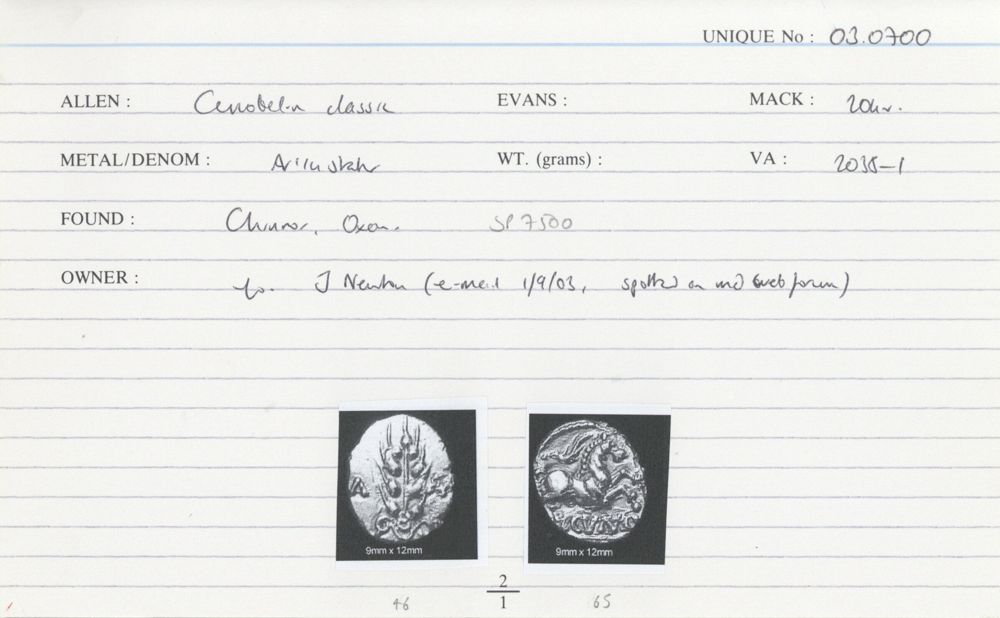 UNIQUE No : 03.0700
ALLEN : Cunobelin classic EVANS : MACK :
METAL/DENOM : WT. (grams) : VA : 2038-1
FOUND : Chinnor, Oxon. SP 7500
OWNER : J Newton (e-mail 1/9/03, spotted on md web forum)
9mm x 12mm 9mm x 12mm
2
46 1 65